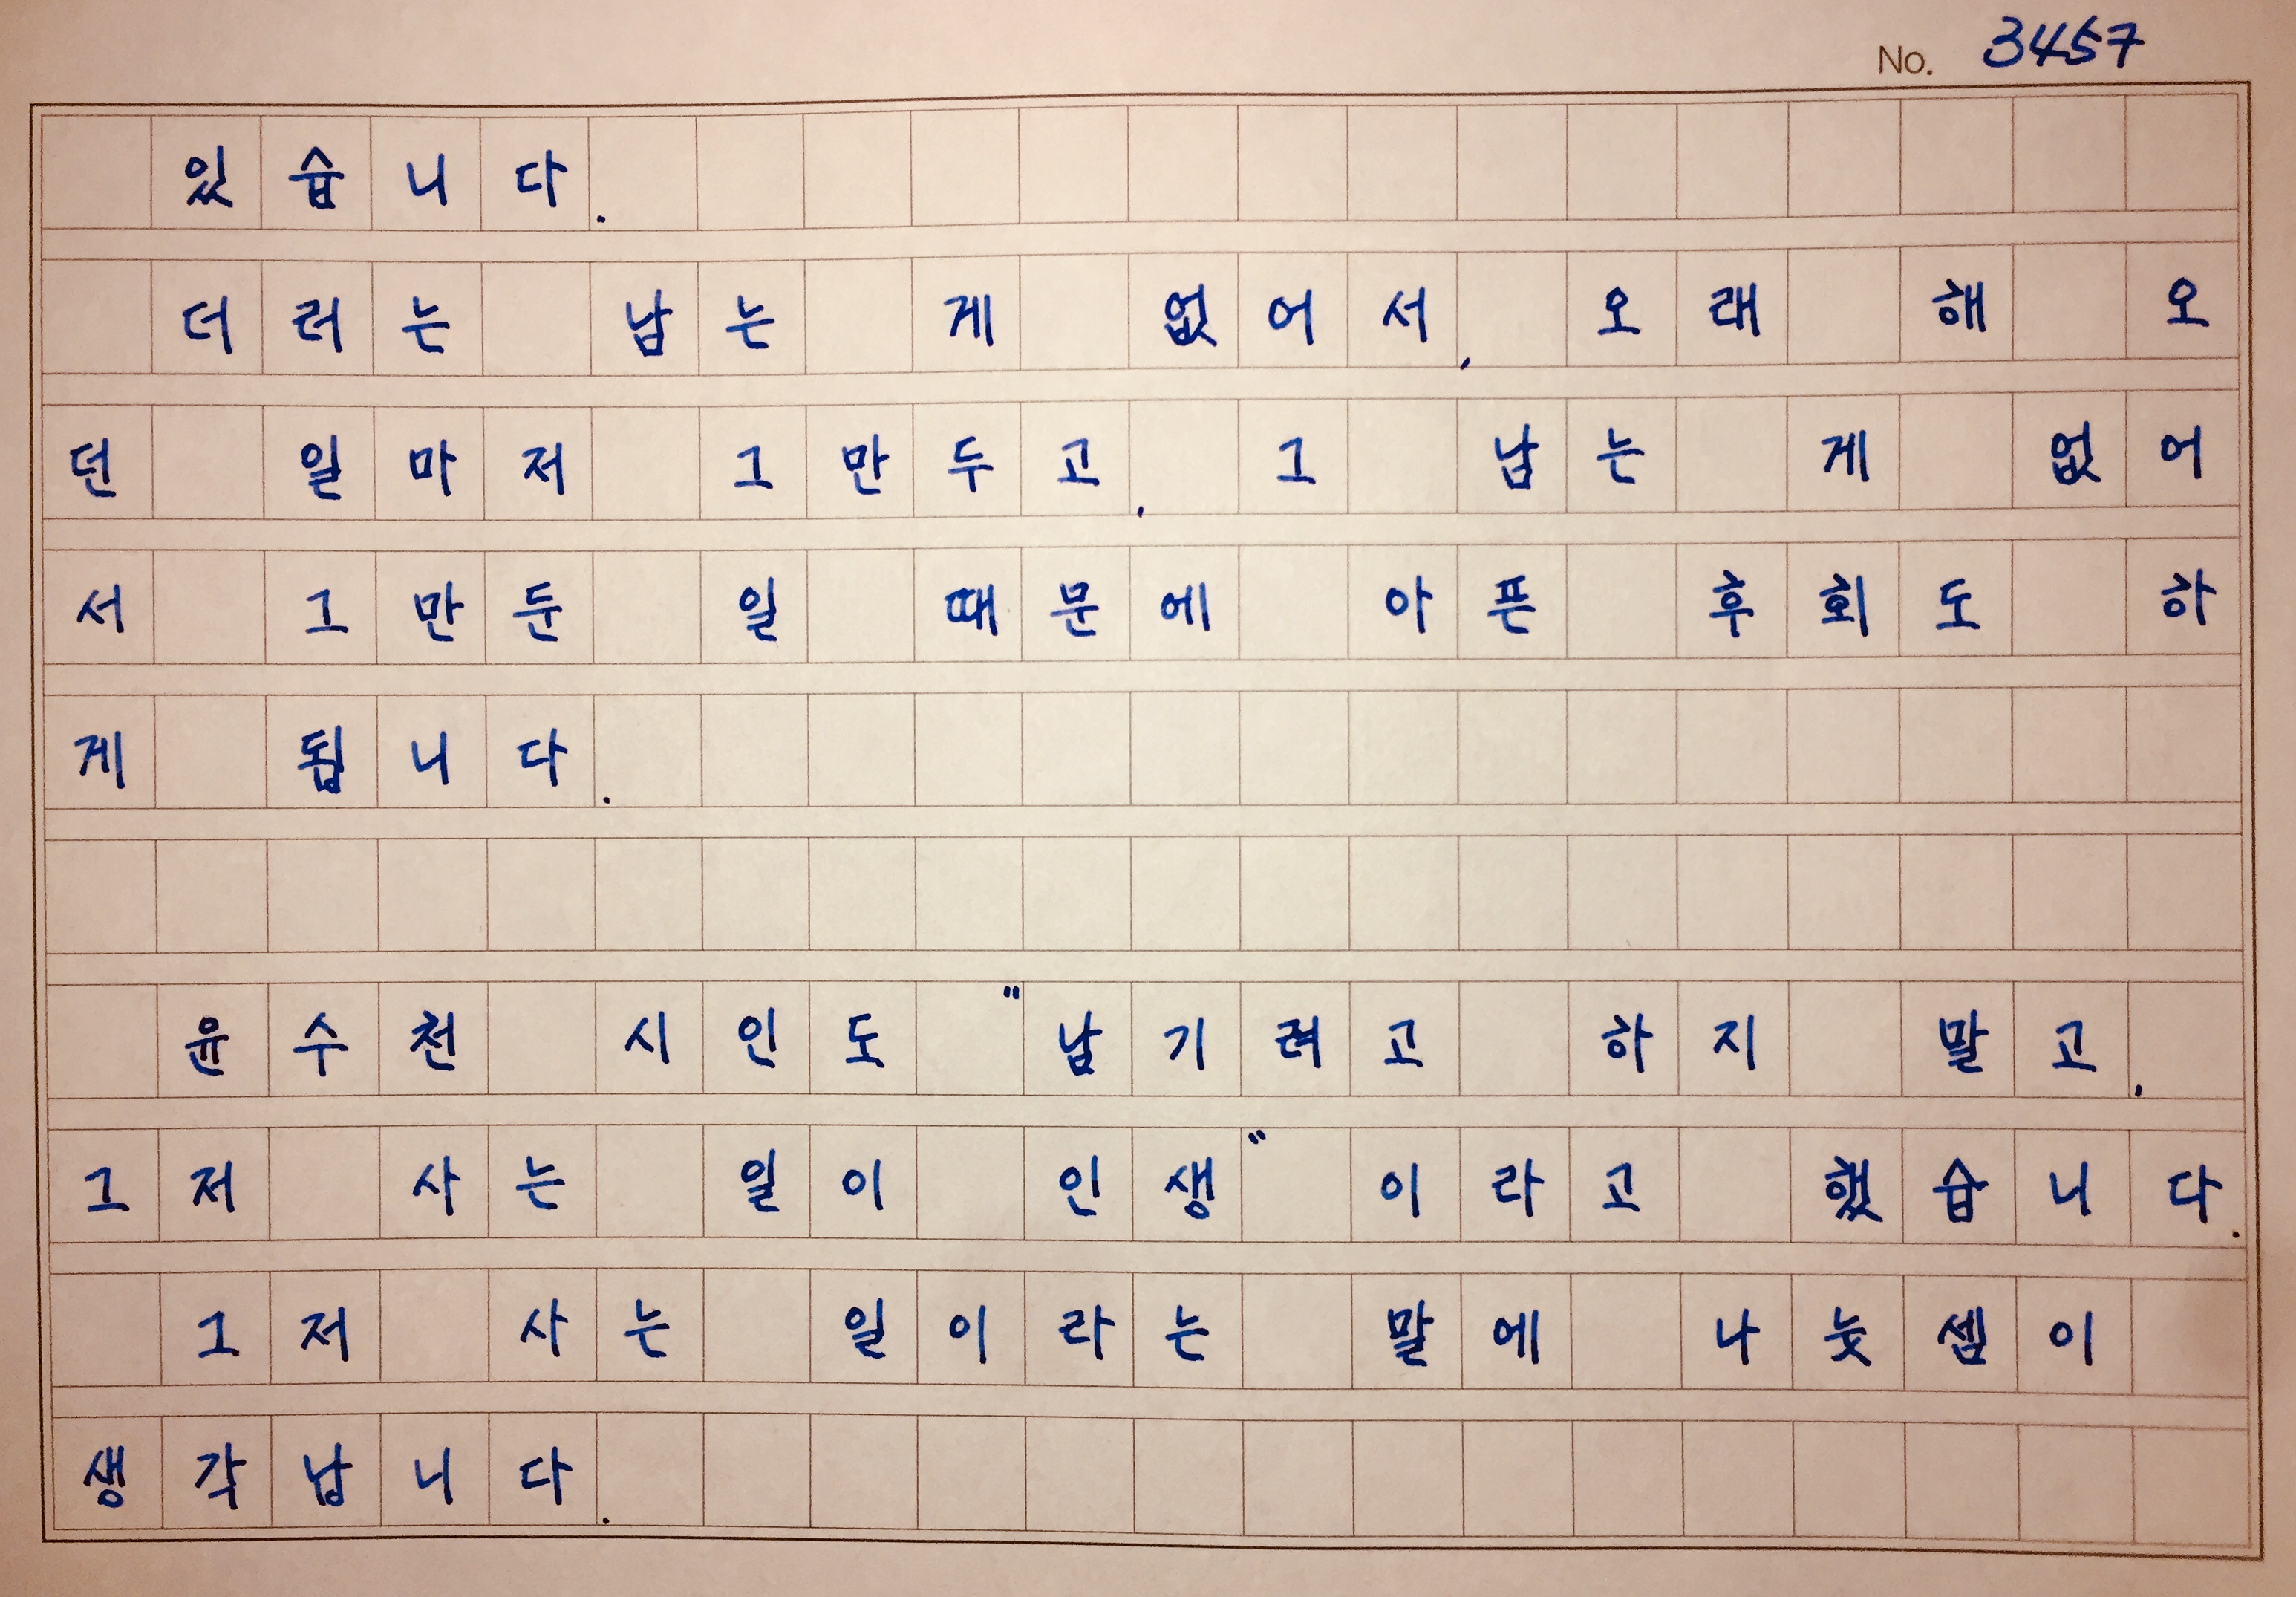 No. 3457
있습니다.
더러는 남는 게 없어서, 오래 해 오
던 일마저 그만두고, 그 남는 게 없어
서 그만둔 일 때문에 아픈 후회도 하
게 됩니다.
윤수천 시인도 "남기려고 하지 말고,
그저 사는 일이 인생" 이라고 했습니다.
그저 사는 일이라는 말에 나눗셈이
생각납니다.